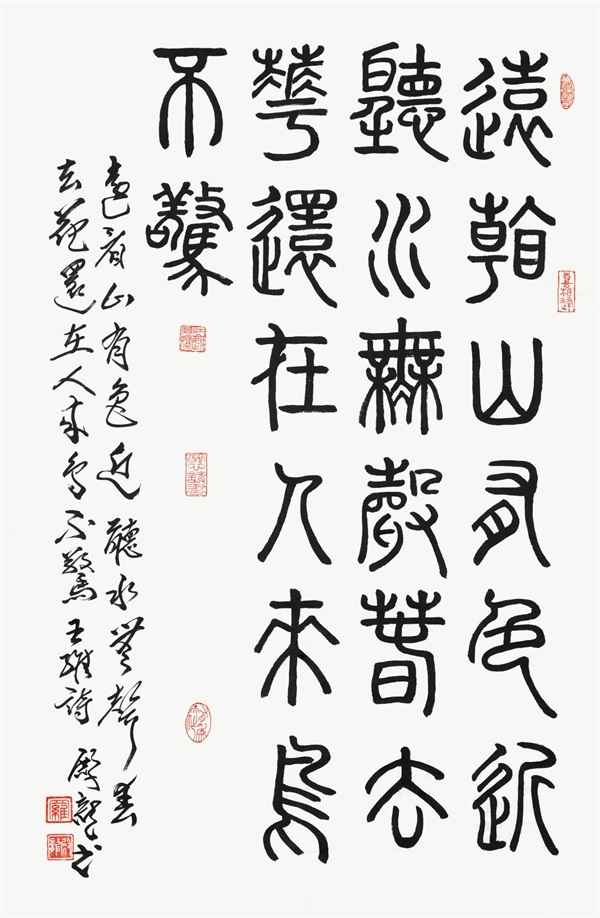 遠看山有色近
聽水無聲春去
華還在人來鳥
不驚
遠看山有色近聽水無聲春
去花還在人來鳥不驚王維詩